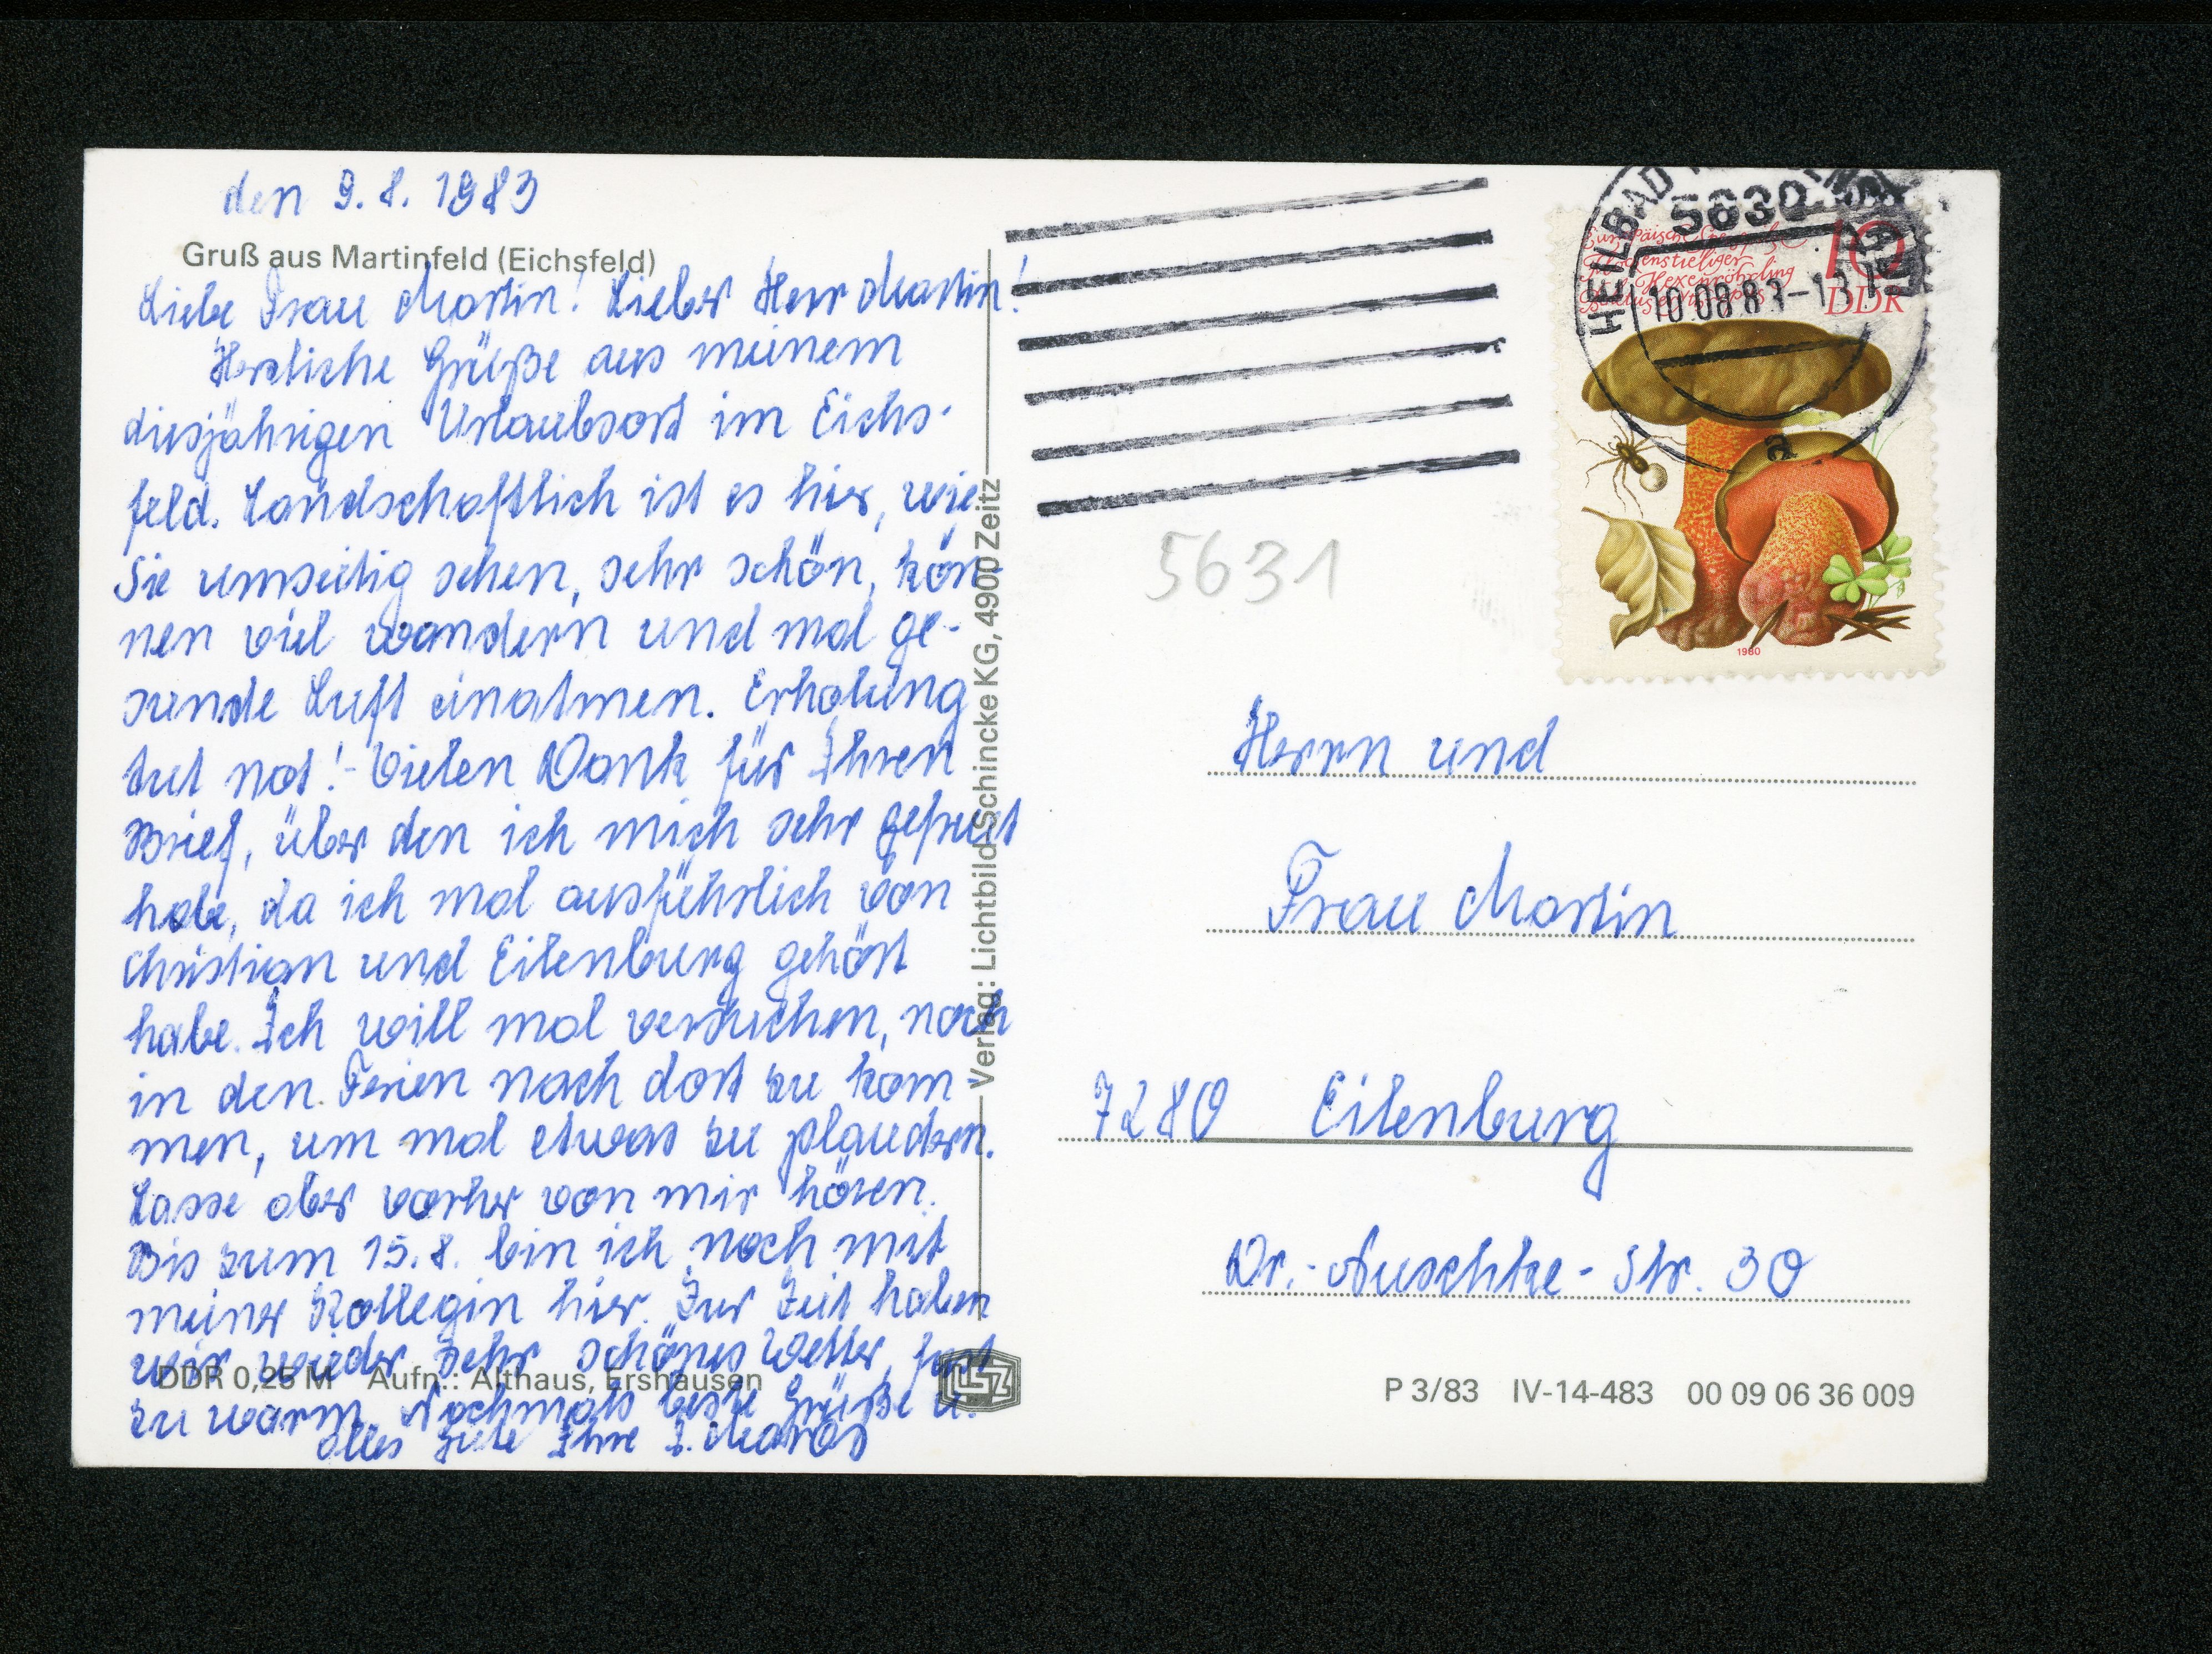 den 9. 8. 1983
Gruß aus Martinfeld (Eichsfeld)
Liebe Frau Martin! Lieber Herr Martin!
Herzliche Grüße aus meinem
diesjährigen Urlaubsort im Eichs-
feld. Landschaftlich ist es hier, wie
Sie umseitig sehen, sehr schön, kön-
nen viel wandern und mal ge-
sunde Luft einatmen. Erholung
tut not! - Vielen Dank für Ihren
Brief, über den ich mich sehr gefreut
habe, da ich mal ausführlich von
Christian und Eilenburg gehört
habe. Ich will mal versuchen, noch
in den Ferien nach dort zu kom-
men, um mal etwas zu plaudern.
Lasse aber vorher von mir hören.
Bis zum 15. 8. bin ich noch mit
meiner Kollegin hier. Zur Zeit haben
wir wieder sehr schönes Wetter, fast
zu warm. Nochmals beste Grüße u.
alles Gute Ihre
DDR 0,25 M Aufn.: Althaus, Ershausen
Verlag: Lichtbild-Schincke KG, 4900 Zeitz
LSZ
HEILBAD
5630
10.08.83-13
a
Flockenstieliger
Hexenröhrling
10
DDR
1980
5631
Herrn und
Frau Martin
7280 Eilenburg
Dr.-Kuschke-Str. 30
P 3/83 IV-14-483 00 09 06 36 009